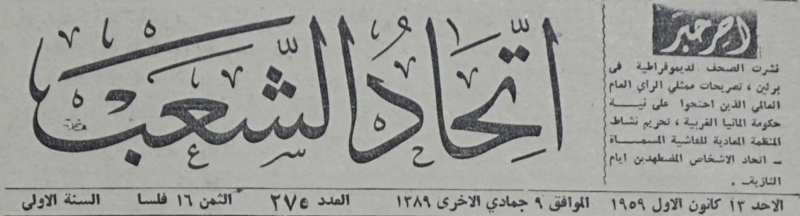 اخر خبر
نشرت الصحف لديموقراطية فى
برلين ، تصريحات ممثلي الرأي العام
العالمي الذين احتجوا على نيـة
حكومة المانيا الغربية ، تحريم نشاط
المنظمة المعادية للفاشية المسمـاة
ـ اتحاد الاشخاص المضطهدين ايام
النازية ـ .
اتّحادُ الشّعب
الاحد ١٣ كانون الاول ١٩٥٩ الموافق ٩ جمادي الاخرى ١٣٨٩ العدد ٢٧٥ الثمن ١٦ فلسا السنة الاولى